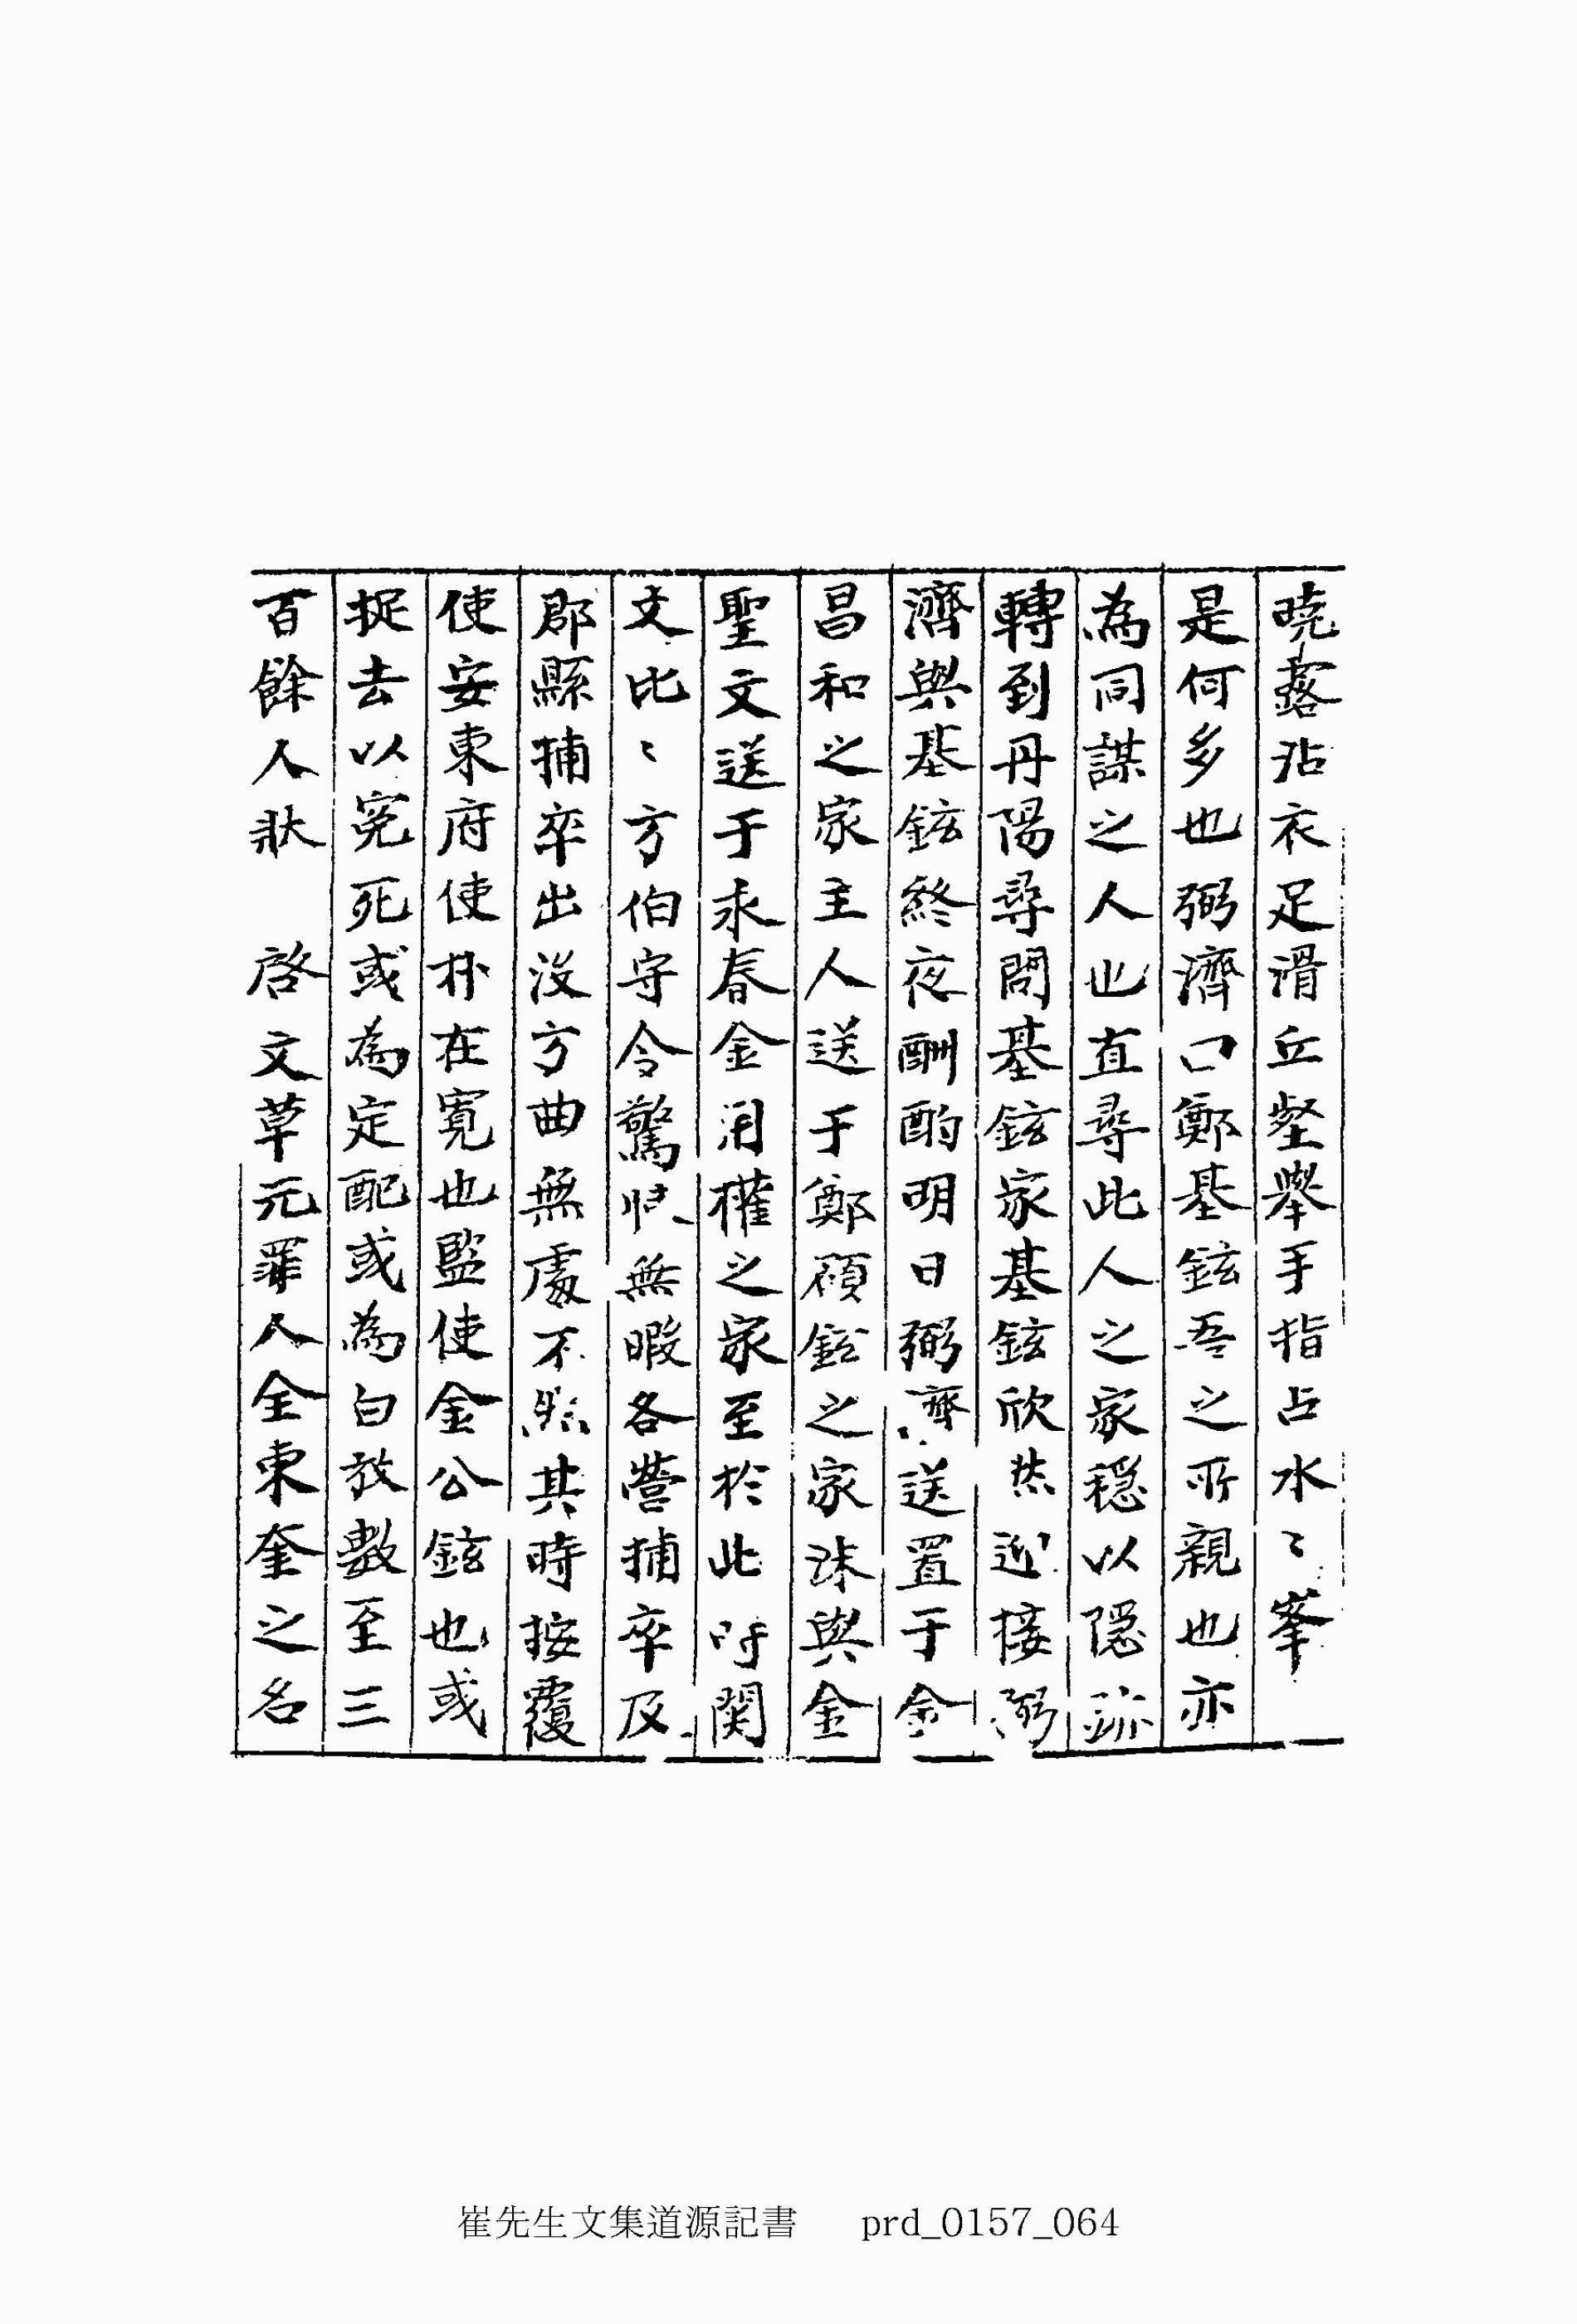 曉露沾衣足滑丘壑擧手指占水〻峯
是何多也弼濟曰鄭基鉉吾之所親也亦
為同謀之人也直尋此人之家穩以隱跡
轉到丹陽尋問基鉉家基鉉欣然迎接弼
濟與基鉉終夜酬酌明日弼濟送置于金
昌和之家主人送于鄭碩鉉之家洙與金
聖文送于永春金用權之家至於此時関
文比〻方伯守令驚怯無暇各營捕卒及
郡縣捕卒出沒方曲無處不然其時按覆
使安東府使朴在寬也監使金公鉉也或
捉去以冤死或為定配或為白放數至三
百餘人狀 啓文草元罪人全東奎之名
崔先生文集道源記書 prd_0157_064